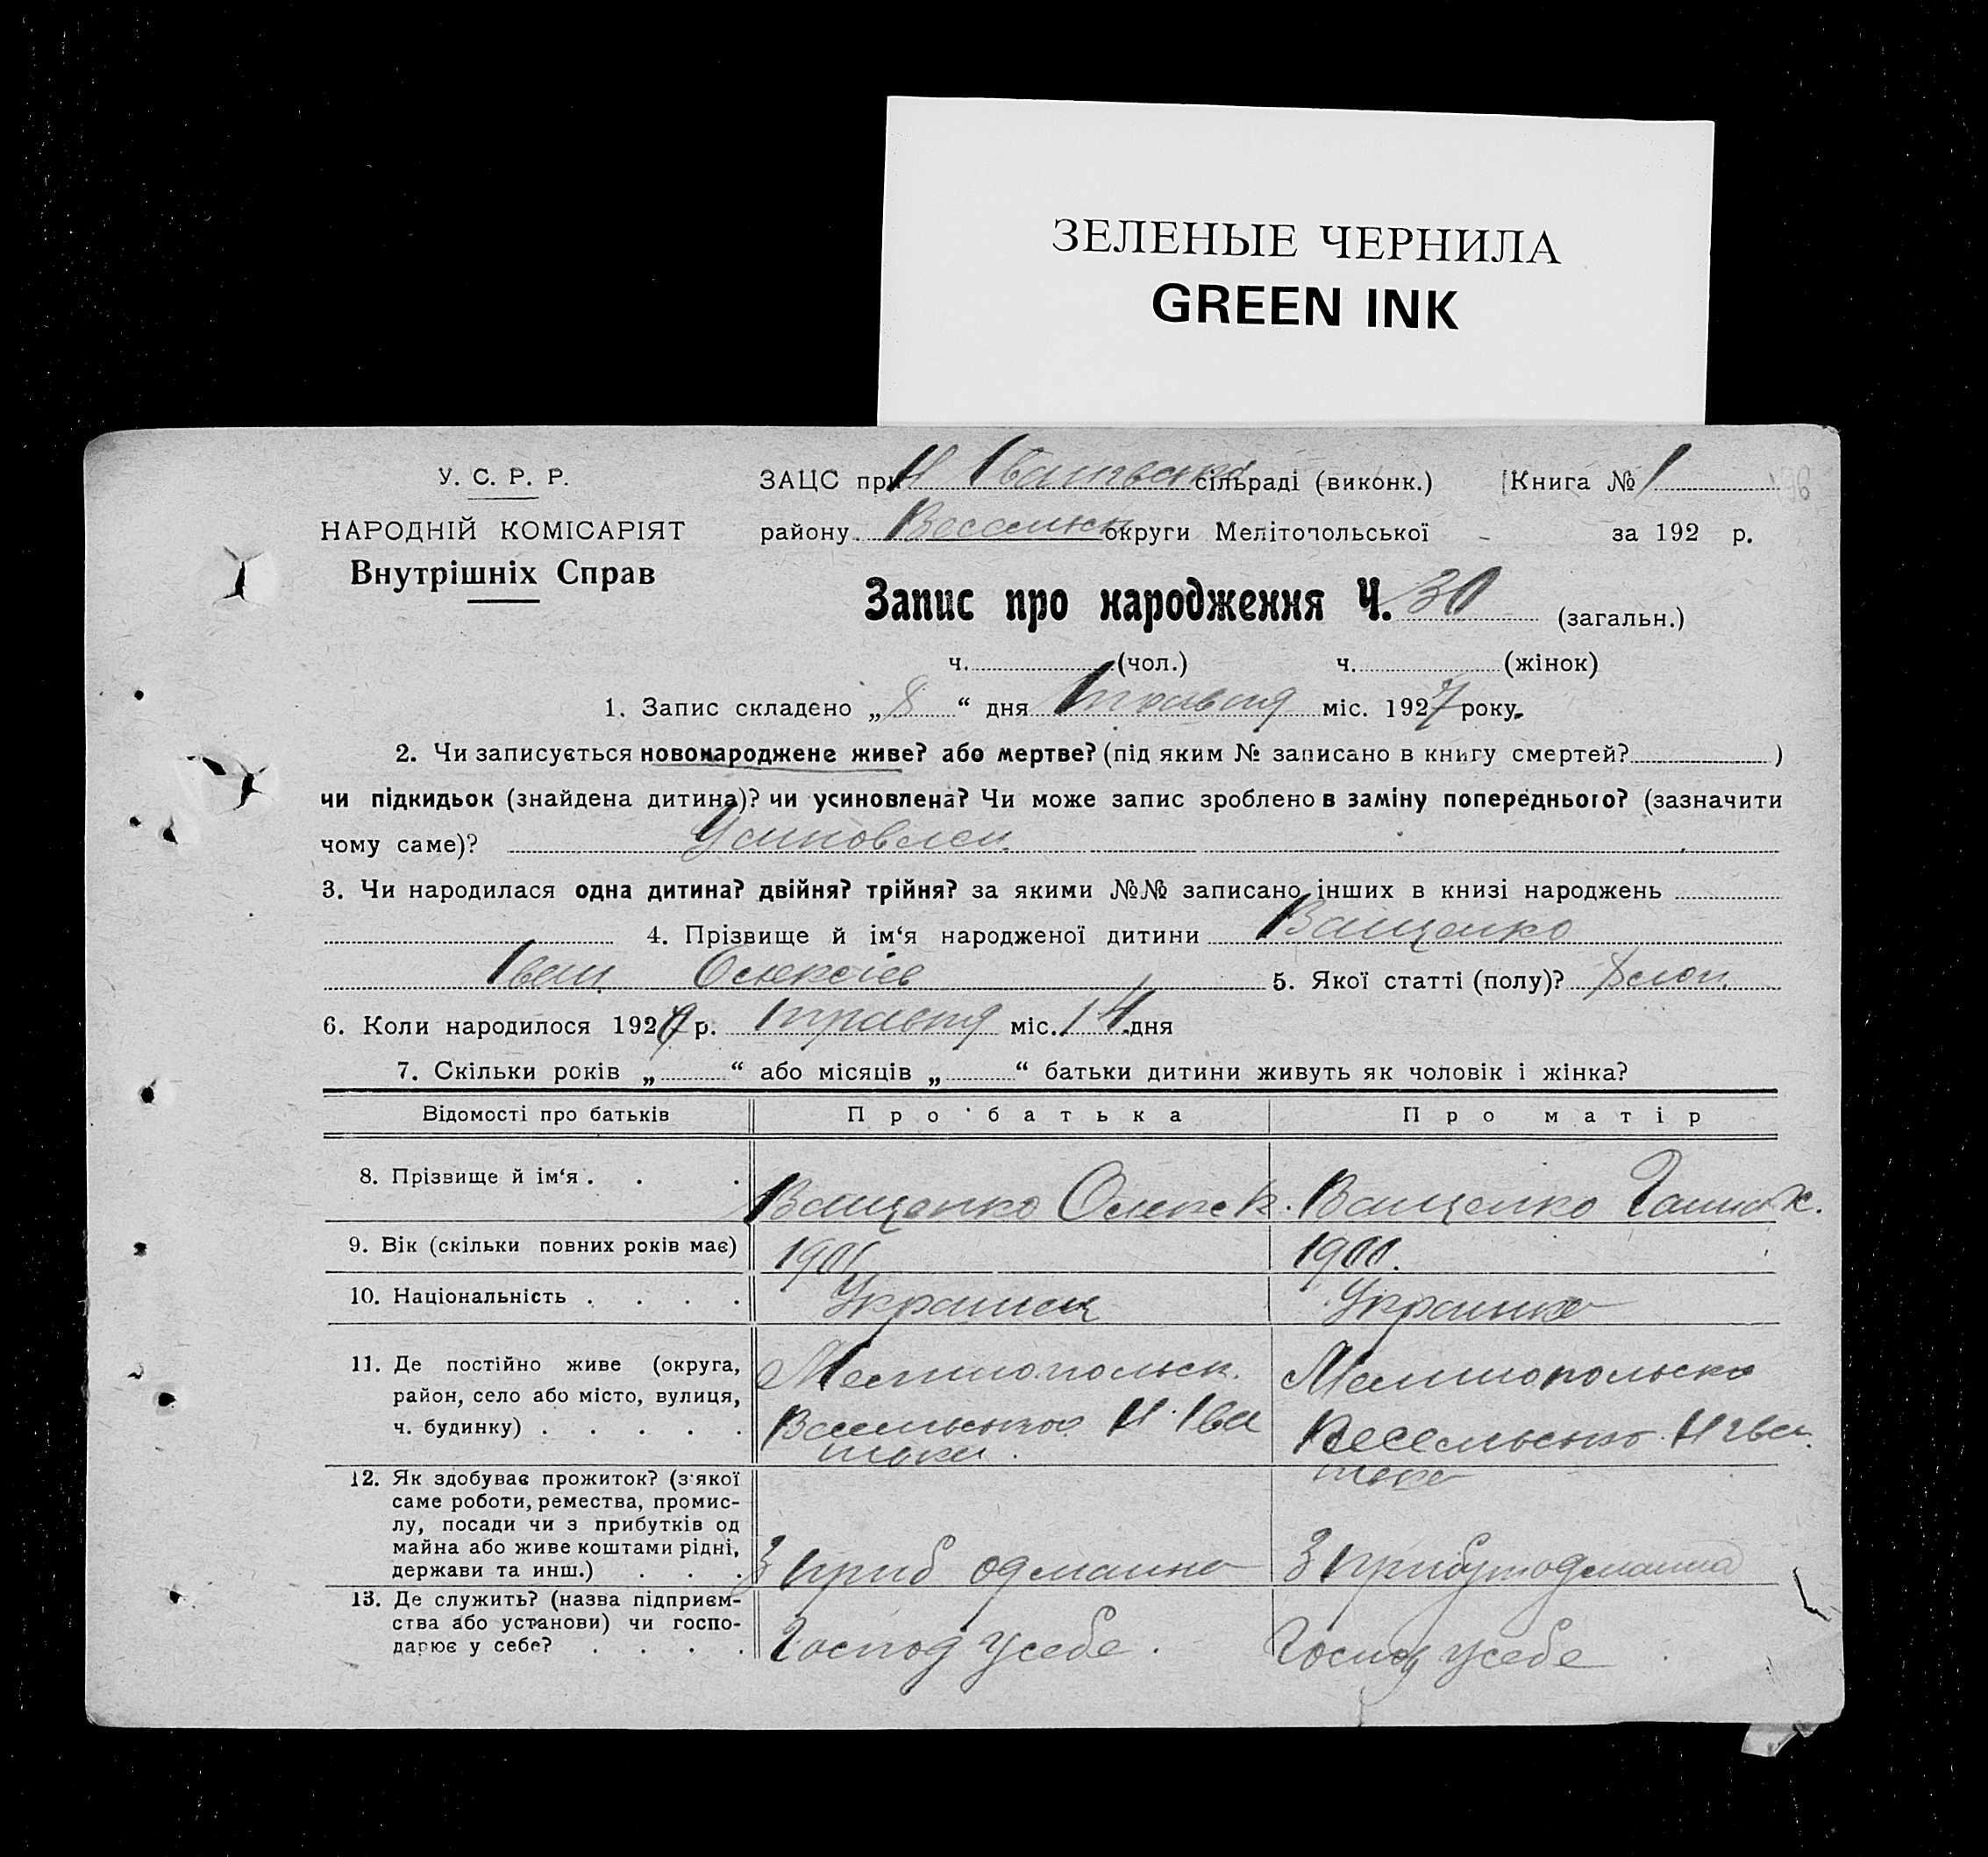 ЗЕЛЕНЫЕ ЧЕРНИЛА
GREEN INK
У. С. Р. Р.
НАРОДНІЙ КОМІСАРІЯТ
Внутрішніх Справ
ЗАЦС при Н Іватьвка сільраді (виконк.) Книга № 1
району Веселик округи Мелітопольської за 192 р.
Запис про народження Ч. 30 (загальн.)
ч. (чол.) ч. (жінок)
1. Запис складено „ 8 “ дня травня міс. 1927 року.
2. Чи записується новонароджене живе? або мертве? (під яким № записано в книгу смертей? )
чи підкидьок (знайдена дитина)? чи усиновлена? Чи може запис зроблено в заміну попереднього? (зазначити
чому саме)? Усиновлен.
3. Чи народилася одна дитина? двійня? трійня? за якими №№ записано інших в книзі народжень
4. Прізвище й ім‘я народженої дитини Ващенко
Іван Олексієв 5. Якої статті (полу)? Хлоп.
6. Коли народилося 192 р. травня міс. 14 дня
7. Скільки років „ “ або місяців „ “ батьки дитини живуть як чоловік і жінка?
Відомості про батьків Про батька Про матір
8. Прізвище й ім‘я . . . Ващенко Олекс Ващенко Ганна
9. Вік (скільки повних років має) 1901 1900.
10. Національність . . . . Украинец Украинка
11. Де постійно живе (округа, Мелитопольск. Мелитопольска
район, село або місто, вулиця,
ч. будинку) . . . . . Весельська Н. Іва Весельська Н Іва
тька. тька
12. Як здобуває прожиток? (з якої
саме роботи, ремества, промис-
лу, посади чи з прибутків од
майна або живе коштами рідні,
держави та инш.) . . . З приб одмаина З прибут одмаина
13. Де служить? (назва підприєм-
ства або установи) чи госпо-
дарює у себе? . . . . Господ у себе. Господ у себе